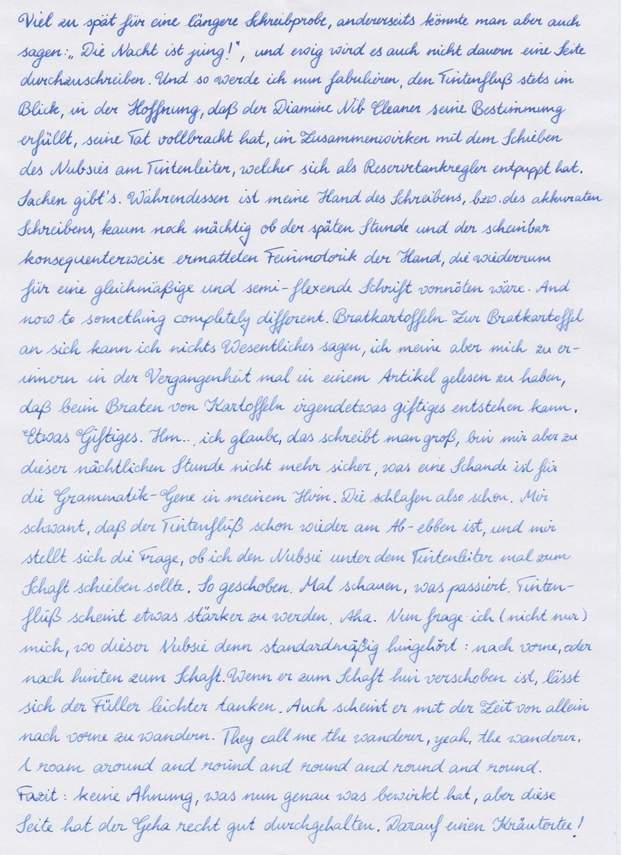 Viel zu spät für eine längere Schreibprobe, andererseits könnte man aber auch
sagen: „Die Nacht ist jung!", und ewig wird es auch nicht dauern eine Seite
durchzuschreiben. Und so werde ich nun fabulieren, den Tintenfluß stets im
Blick, in der Hoffnung, daß der Diamine Nib Cleaner seine Bestimmung
erfüllt, seine Tat vollbracht hat, im Zusammenwirken mit dem Schieben
des Nubsies am Tintenleiter, welcher sich als Reservetankregler entpuppt hat.
Sachen gibt's. Währendessen ist meine Hand des Schreibens, bzw. des akkuraten
Schreibens, kaum noch mächtig ob der späten Stunde und der scheinbar
konsequenterweise ermatteten Feinmotorik der Hand, die wiederrum
für eine gleichmäßige und semi-flexende Schrift vonnöten wäre. And
now to something completely different. Bratkartoffeln. Zur Bratkartoffel
an sich kann ich nichts Wesentliches sagen, ich meine aber mich zu er-
innern in der Vergangenheit mal in einem Artikel gelesen zu haben,
daß beim Braten von Kartoffeln irgendetwas giftiges entstehen kann.
Etwas Giftiges. Hm.., ich glaube, das schreibt man groß, bin mir aber zu
dieser nächtlichen Stunde nicht mehr sicher, was eine Schande ist für
die Grammatik-Gene in meinem Hirn. Die schlafen also schon. Mir
schwant, daß der Tintenfluß schon wieder am Ab-ebben ist, und mir
stellt sich die Frage, ob ich den Nubsie unter dem Tintenleiter mal zum
Schaft schieben sollte. So geschoben. Mal schauen, was passiert. Tinten-
fluß scheint etwas stärker zu werden. Aha. Nun frage ich (nicht nur)
mich, wo dieser Nubsie denn standardmäßig hingehört: nach vorne, oder
nach hinten zum Schaft. Wenn er zum Schaft hin verschoben ist, lässt
sich der Füller leichter tanken. Auch scheint er mit der Zeit von allein
nach vorne zu wandern. They call me the wanderer, yeah, the wanderer.
I roam around and round and round and round and round.
Fazit: keine Ahnung, was nun genau was bewirkt hat, aber diese
Seite hat der Geha recht gut durchgehalten. Darauf einen Kräutertee!